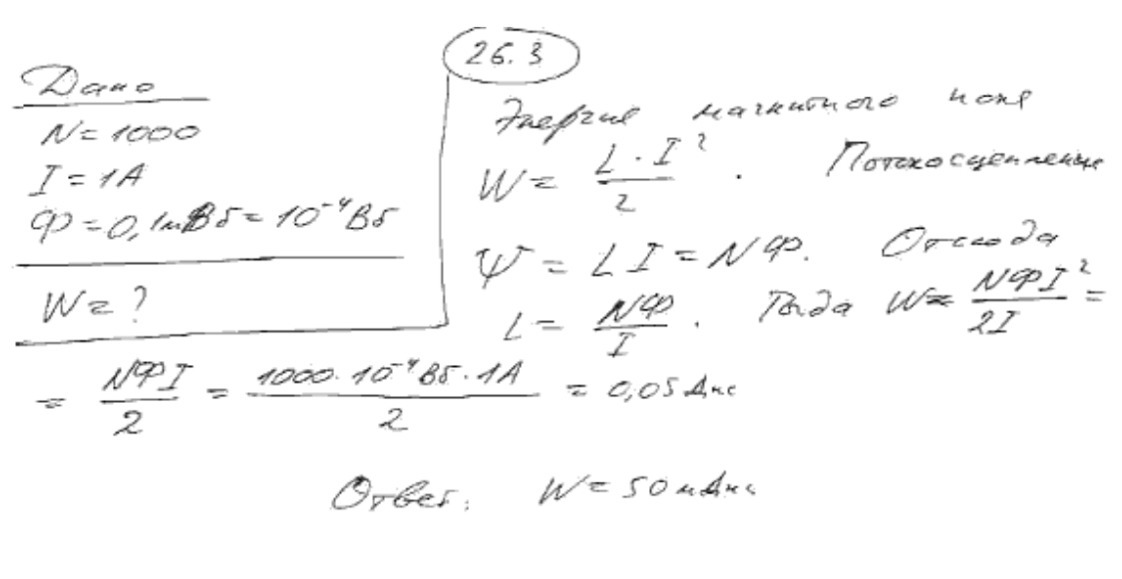 26.3
Дано
N = 1000
I = 1А
Ф = 0,1мВб = 10⁻⁴ Вб
W = ?
Энергия магнитного поля
W = L · I² / 2 . Потокосцепление
Ψ = L I = NФ. Отсюда
L = NФ / I . Тогда W = NФI² / 2I =
= NФI / 2 = 1000 · 10⁻⁴ Вб · 1А / 2 = 0,05 Дж
Ответ: W = 50 мДж